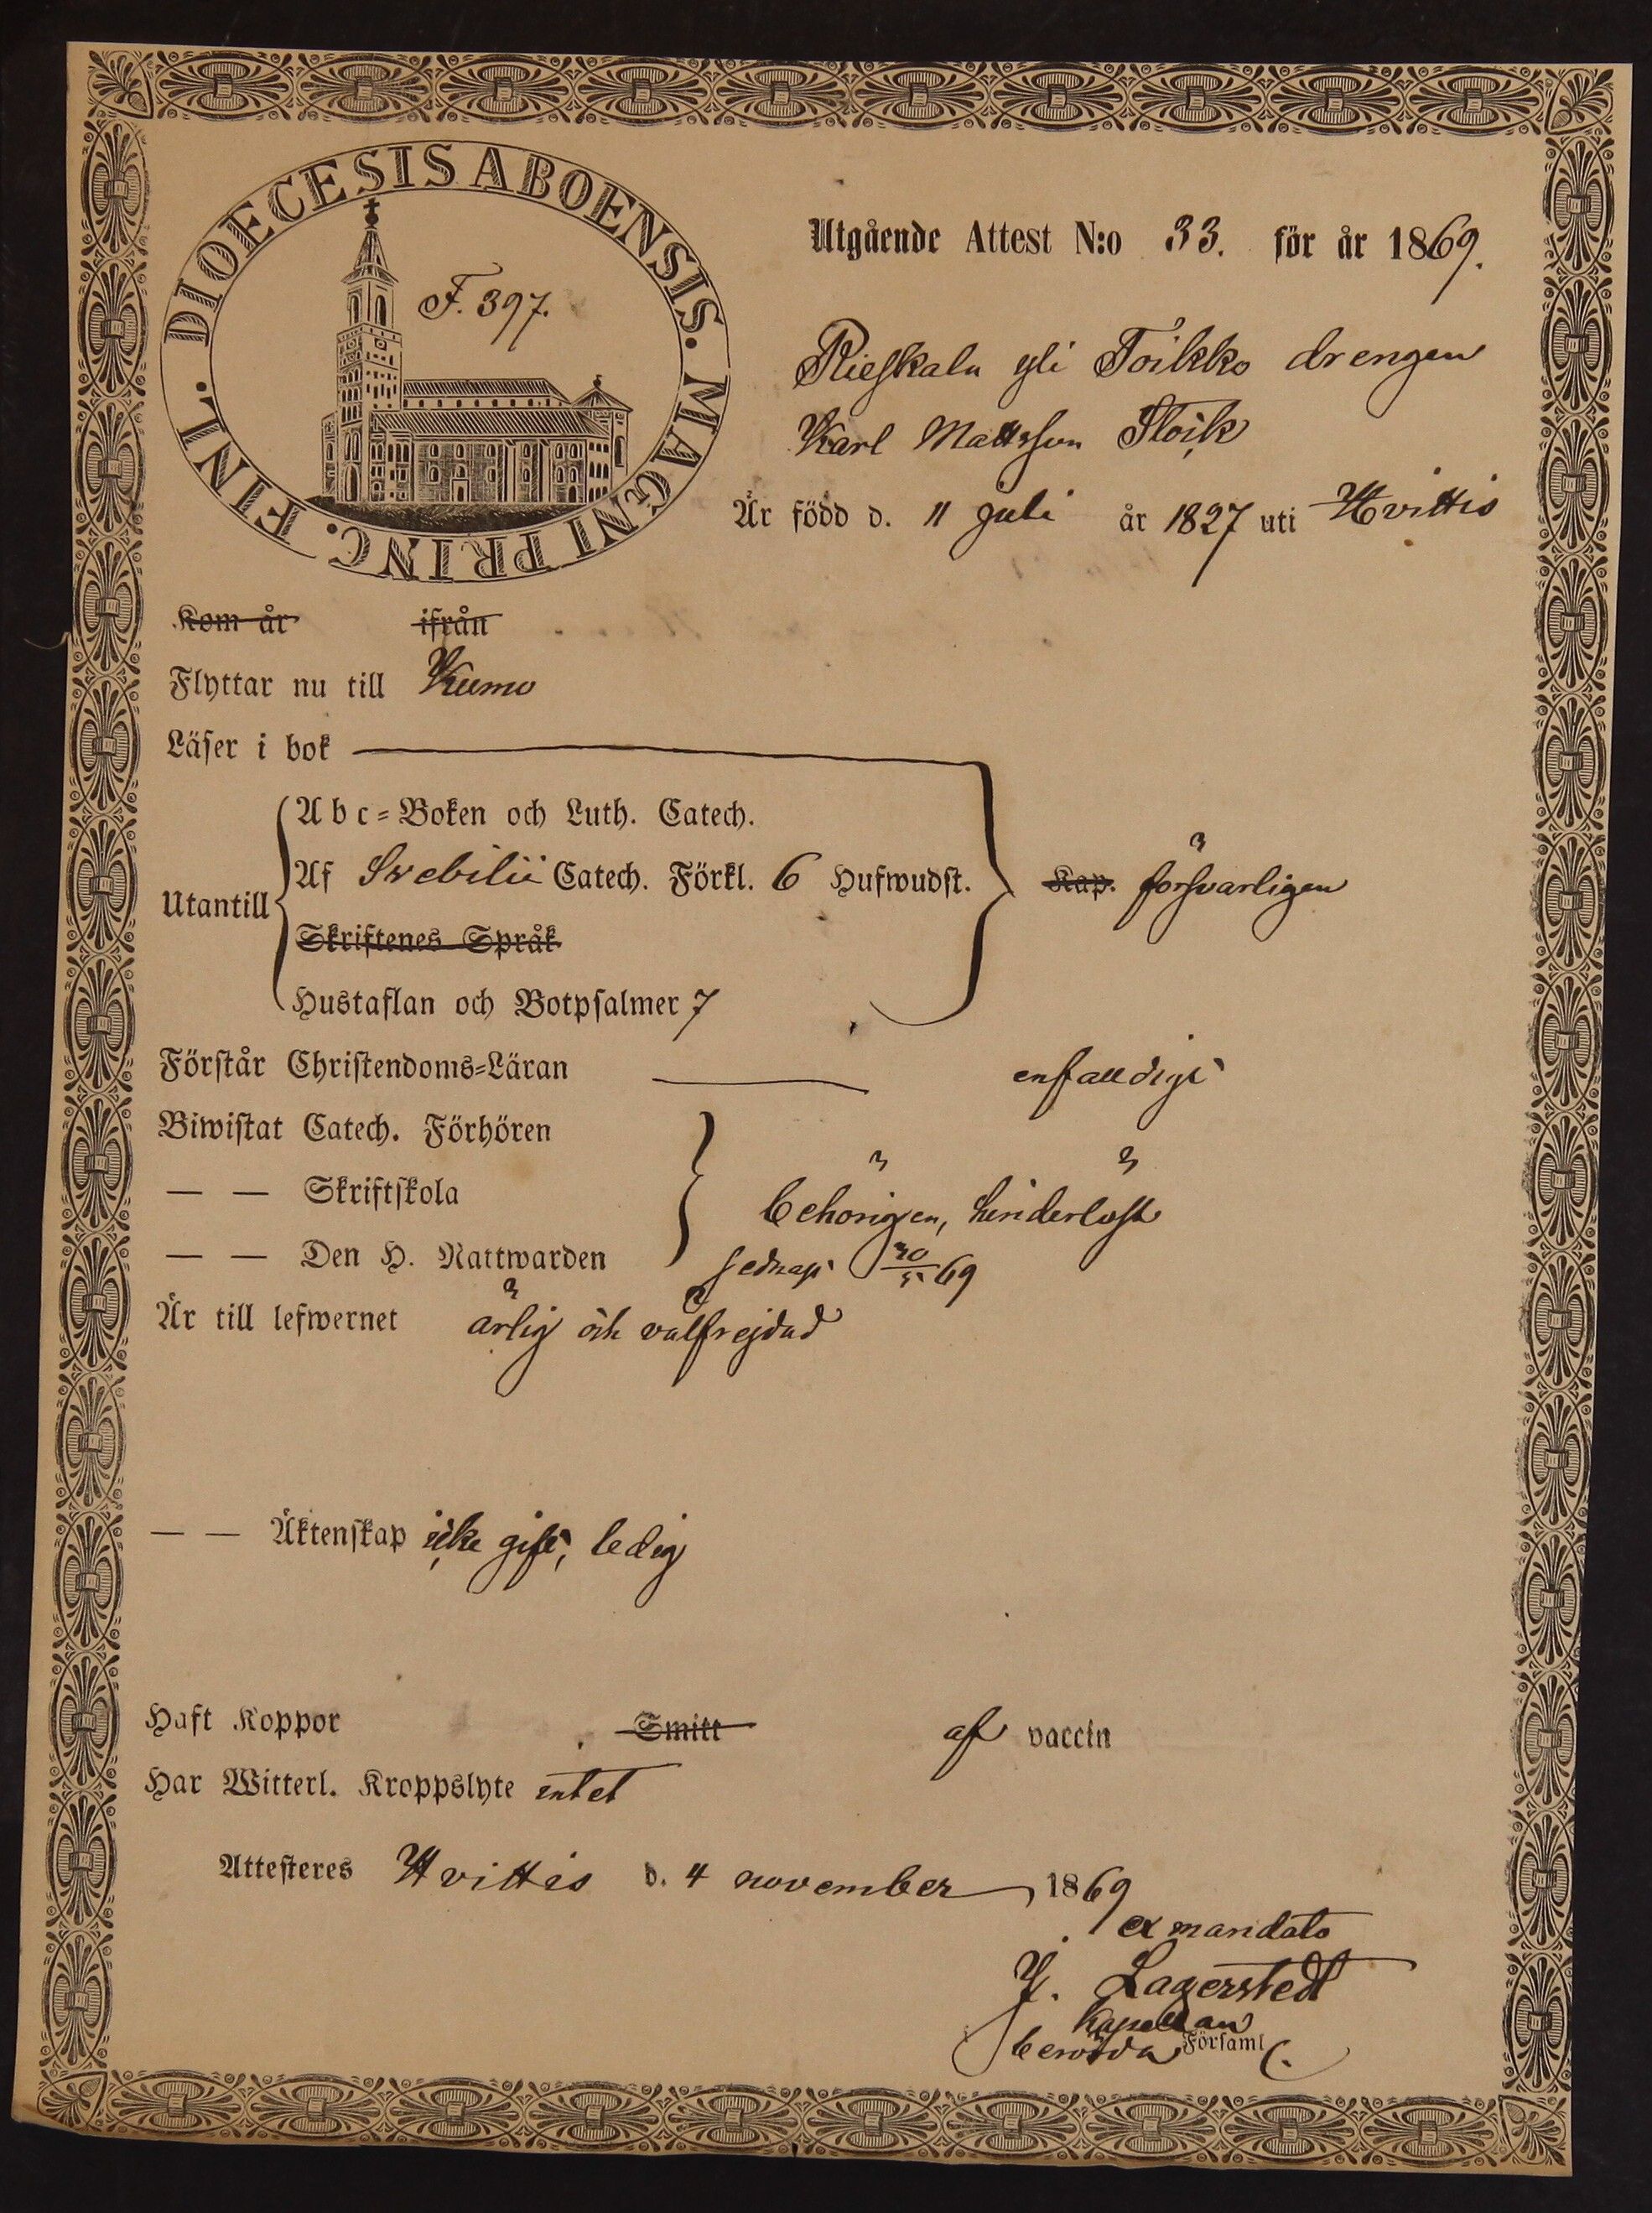 DIOECESIS ABOENSIS. MAGNI PRINC. FINL.
F. 397.
Utgående Attest N:o 33. för år 1869.
Rieskala yli Toikko drengen
Karl Mattsson Stöik
Är född d. 11 juli år 1827 uti Hvittis
Kom år ifrån
Flyttar nu till Kumo
Läser i bok
Abc=Boken och Luth. Catech.
Utantill Af Svebilii Catech. Förkl. 6 Hufwudst. Kap. försvarligen
Skriftenes Språk
Hustaflan och Botpsalmer 7
Förstår Christendoms=Läran enfalldigt
Biwistat Catech. Förhören
— — Skriftskola behörigen, hinderlöst
— — Den H. Nattwarden sednast 30/5 69
Är till lefwernet ärlig och välfrejdad
— — Äktenskap icke gift, ledig
Haft Koppor Smitt af vaccin
Har Witterl. Kroppslyte intet
Attesteres Hvittis d. 4 november 1869
ex mandato
J. Lagerstedt
Kapellan
berörda Församl.